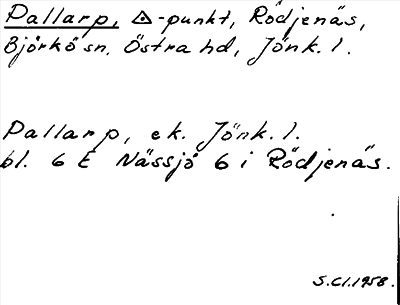 Pallarp, △-punkt, Rödjenäs,
Björkö sn, Östra hd, Jönk. l.
Pallarp, ek. Jönk. l.
bl. 6 E Nässjö 6 i Rödjenäs.
S.Cl.1958.